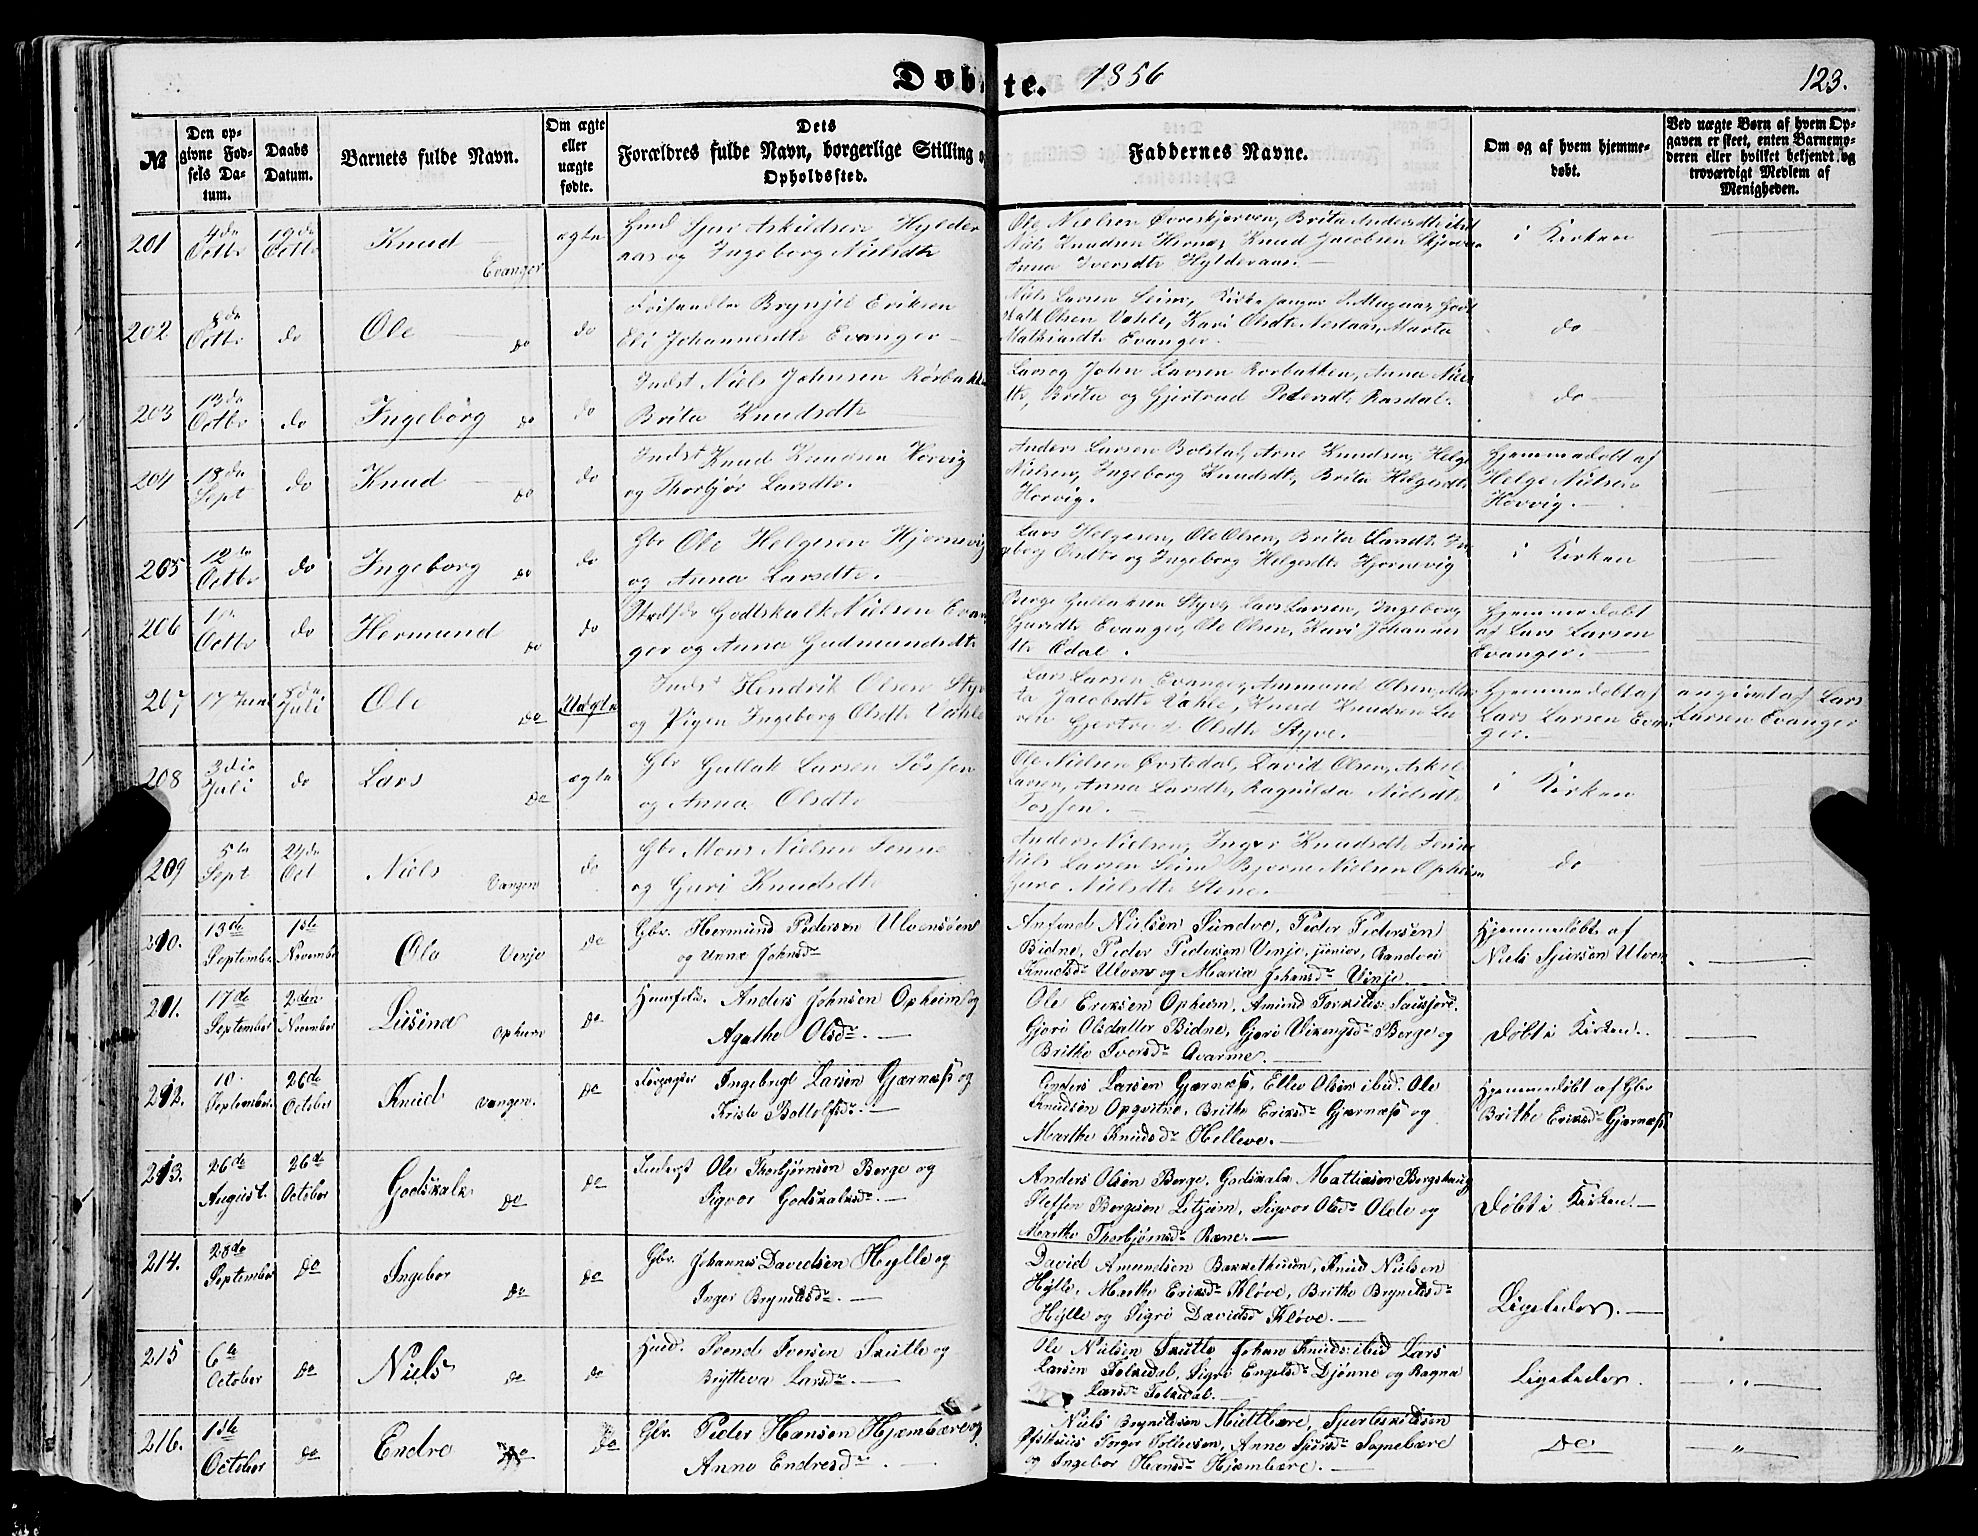 Døbte. 1856
123.
№
Den op-
givne Fød-
sels Da-
tum.
Daabs
Datum.
Barnets fulde Navn.
Om ægte
eller
uægte
fødte.
Dets
Forældres fulde Navn, borgerlige Stilling og
Opholdssted.
Faddernes Navne.
Om og af hvem hjemme-
døbt.
Ved uægte Børn af hvem Op-
gaven er skeet, enten Barnemo-
deren eller hvilket bekjendt og
troværdigt Medlem af
Menigheden.
201
4de
Octbr
19de
Octbr
Knud
Evanger
ægte
Askildsen Hylder
aas og Ingeborg Nielsdtr
Ole Nielsen Øvreskjerven, Brita Andersdtr ibid
Niels Knudsen Hernæs, Knud Jacobsen Skjerven
Anna Iversdtr Hylderaas.
i Kirken
202
8de
Octbr
do
Ole
do
do
Brynjel Eriksen
Eli Johannesdtr Evanger
Niels Larsen Seim, Kirkesanger Magnus, Godt
skalk Olsen Vahle, Kari Olsdtr Nestaas, Marta
Mathiasdtr Evanger.
do
203
13de
Octbr
do
Ingebørg
do
do
Indst Niels Johnsen Rørbakken
Brita Knudsdtr
Lars og John Larsen Rørbakken, Anna Niels
dtr, Brita og Gjertrud Pedersdtr Rasdal.
do
204
18de
Sept
do
Knud
do
do
Indst Knud Knudsen Horvig
og Thorbjør Larsdtr.
Anders Larsen Bolstad, Arne Knudsen, Helge
Nielsen, Ingeborg Knudsdtr, Brita Helgesdtr
Horvig.
Hjemmedøbt af
Helge Nielsen
Horvig.
205
12te
Octbr
do
Ingeborg
do
do
Gbr Ole Helgesen Hjørnevig
og Anna Larsdtr.
Lars Helgesen, Ole Olsen, Brita Larsdtr, In
geborg Olsdtr og Ingeborg Helgesdtr Hjørnevig
i Kirken
206
Octbr
do
Hermund
do
do
Godtskalk Nielsen Evan
ger og Anna Gudmundsdtr
Berge Gullaksen Styve, Lars Larsen, Ingeborg
Evanger, Ole Olsen, Kari Johannes
dtr Ødal.
Hjemmedøbt
af Lars Larsen
Evanger.
207
17 Juni
5de
Juli
Ole
do
Uægte
Indst Hendrik Olsen Styve
og Pigen Ingeborg Olsdtr Vahle
Lars Larsen Evanger, Aamund Olsen, Mar
ta Jacobsdtr Vahle, Knud Knudsen
Gjertrud Olsdtr Styve.
Hjemmedøbt af
Lars Larsen Evan
ger.
angivet af Lars
Larsen Evanger
208
3die
Juli
do
Lars
do
ægte
Gbr Gullak Larsen Fosse
og Anna Olsdtr
Ole Nielsen Ørstedal, David Olsen, Askil
Larsen, Anna Larsdtr, Ragnilda Nielsdtr
i Kirken
209
5te
Sept
24de
Oct
Niels
Vangen
do
Gbr Mons Nielsen Tenne
og Guri Knudsdtr
Anders Nielsen, Inger Knudsdtr Tenne
Niels Larsen Seim Bjørne Nielsen Opheim
Guro Nielsdtr Stene.
do
210.
13de
September
1ste
November
Ole
Vinje
do
Gbr. Hermund Pedersen Ulvensøen
og Unne Johnsdr
Anfind Nielsen Sundve, Peder Pedersen
Bidne, Peder Pedersen Vinje, junior, Randvei
Knudsdr Ulven og Maria Johansdr Vinje.
Hjemmedøbt af
Niels Sjursen Ulven
211.
17de
September
2den
November
Lusina
Opheim
do
Huusfolk. Anders Johnsen Opheim og
Agathe Olsdr.
Ole Eriksen Opheim, Amund
Gjøri Olsdatter Bidne, Gjøri Vikingsdr Berge og
Brithe Iversdr Qvarme.
Døbt i Kirken.
212.
10.
September
26de
October
Knud
Vangen.
do
Ingebrigt Larsen Gjernæs og
Kristi Bottolfsdr.
Anders Larsen Gjernæs, Ellev Olsen ibid. Ole
Knudsen Opqvitne, Brithe Eriksdr Gjernæs og
Marthe Knudsdr Helleve.
Hjemmedøbt af Gbr
Brithe Eriksdr Gjernæs
213.
26de
August.
26de
October
Godskalk
do
do
Inderst Ole Thorbjørnsen Berge og
Sigvor Godskalksdr.
Anders Olsen Berge, Godskalk Mathiesen Bergshaug
Steffen Børgesen Litzum, Sigvor Olsdr Olde og
Marthe Thorbjørnsdr Rene.
Døbt i Kirken.
214.
20de
September
do
Ingebor
do
do
Gbr. Johannes Davidsen Hylle og
Inger Brynildsdr.
David Amundsen Bakkethuun, Knud Nielsen
Hylle, Marthe Eriksdr Kløve, Brithe Brynildsdr
Hylle og Sigri Davidsd Kløve.
Ligeledes.
215
6te
October
do
Niels
do
do
Huusm. Svend Iversen Skutle og
Bryteva Larsdr.
Ole Nielsen Skutle Johan Knuds. ibid Lars
Larsen Folkedal, Sigri Engelsdr Djønne og Ragna
Larsdr Folkedal.
Ligeledes.
216.
1ste
October
do
Endre
do
do
Gbr. Peder Hansen Hjembære og
Anne Endresdr.
Niels Brynildsen Midtbære,
Torger Tollevsen, Anne Sjursdr Sognebære
og Ingebor Hansdr Hjembære.
do